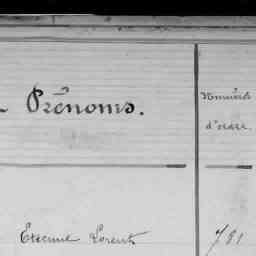 Prénoms.
Numéros
d'ordre.
Etienne Lorent 791